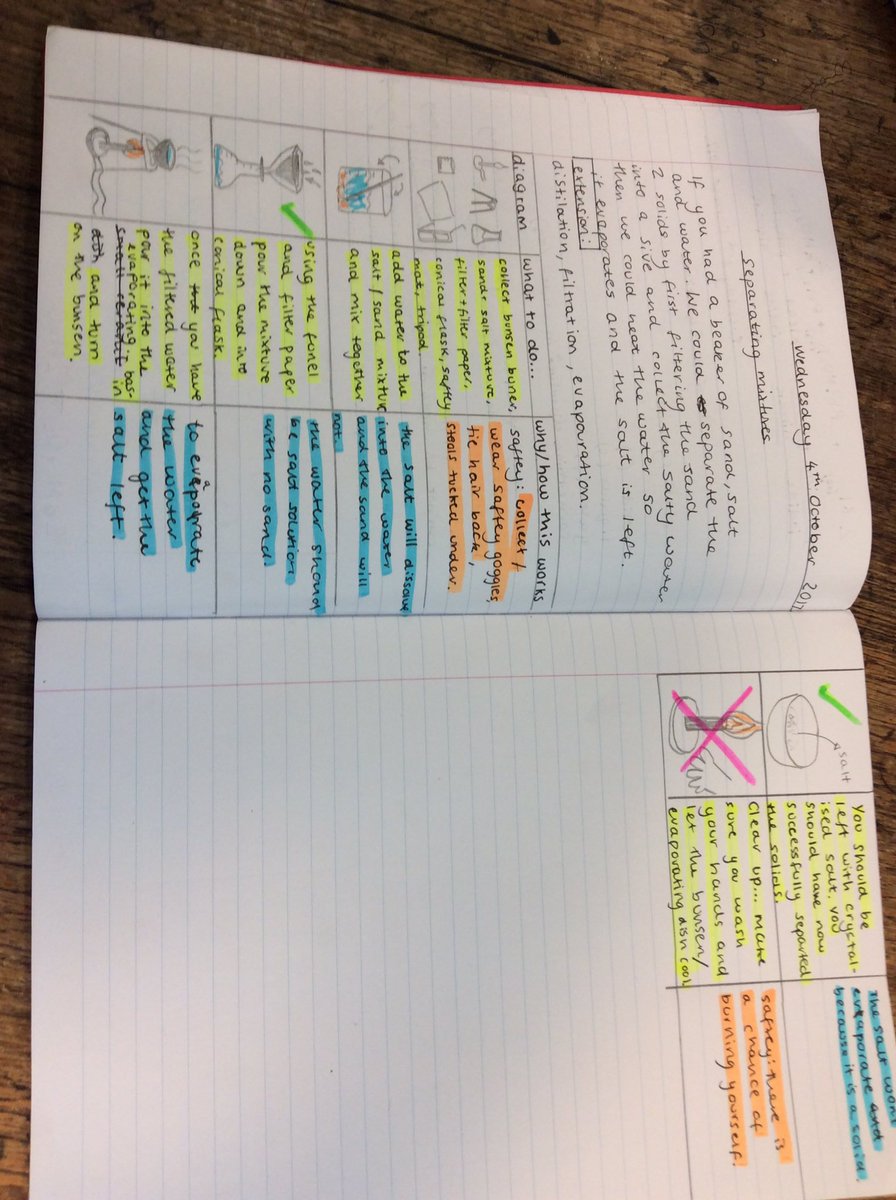 Wednesday 4th October 201
separating mixtures
If you had a beaker of sand, salt
and water. We could separate the
2 solids by first filtering the sand
into a sive and collect the salty water
then we could heat the water so
it evaporates and the salt is left.
extension:
distilation, filtration, evapouration.
diagram
what to do...
why/how this works
collect bunsen buner,
sand + salt mixture,
filter + filter paper,
conical flask, saftey
mat, tripod
saftey: collect +
wear saftey goggles,
tie hair back,
stools tucked under.
add water to the
salt/sand mixture
and mix together
the salt will dissolve
into the water
and the sand will
not.
using the funel
and filter paper
pour the mixture
down and into
conical flask.
the water should
be salt solution
with no sand.
once that you have
the filtered water
pour it into the
evaporating-bas-
small ceramic in
dish and turn
on the bunsen.
to evapourate
the water
and get the
salt left.
salt
You should be
left with crystal-
ised salt. you
should have now
successfully separted
the solids.
The salt wont
evaporate and
because it is a solid.
Clear up... make
sure you wash
your hands and
let the bunsen/
evaporating dish cool
saftey: there is
a chance of
burning yourself.